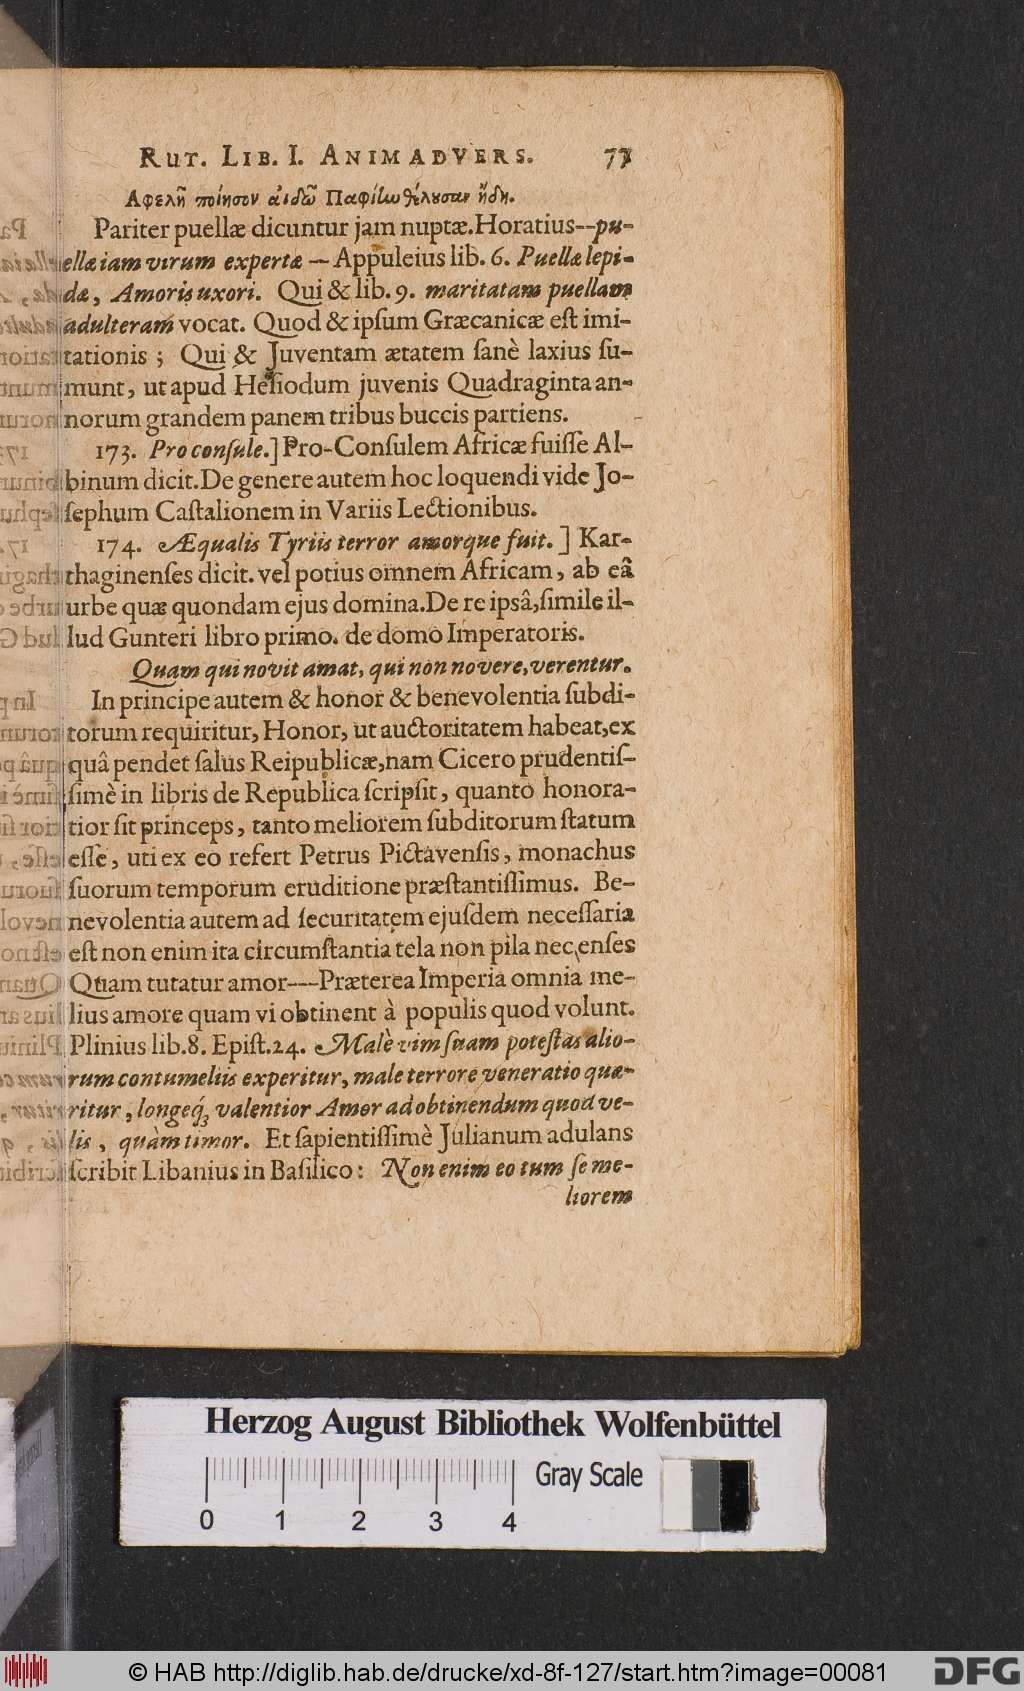 RUT. LIB. I. ANIMADVERS. 73
Αφελῆ ποίησον
Pariter puellæ dicuntur jam nuptæ. Horatius--pu-
ellæ iam virum expertæ — Appuleius lib. 6. Puellæ lepi-
dæ, Amoris uxori. Qui & lib. 9. maritatam puellam
adulteram vocat. Quod & ipſum Græcanicæ eſt imi-
tationis ; Qui & Juventam ætatem ſanè laxius ſu-
munt, ut apud Heſiodum juvenis Quadraginta an-
norum grandem panem tribus buccis partiens.
173. Pro conſule.] Pro-Conſulem Africæ fuiſſe Al-
binum dicit. De genere autem hoc loquendi vide Jo-
ſephum Caſtalionem in Variis Lectionibus.
174. Æqualis Tyriis terror amorque fuit. ] Kar-
thaginenſes dicit. vel potius omnem Africam, ab eâ
urbe quæ quondam ejus domina. De re ipsâ, ſimile il-
lud Gunteri libro primo. de domo Imperatoris.
Quam qui novit amat, qui non novere, verentur.
In principe autem & honor & benevolentia ſubdi-
torum requiritur, Honor, ut auctoritatem habeat, ex
quâ pendet ſalus Reipublicæ, nam Cicero prudentiſ-
ſimè in libris de Republica ſcripſit, quanto honora-
tior ſit princeps, tanto meliorem ſubditorum ſtatum
eſſe, uti ex eo refert Petrus Pictavenſis, monachus
ſuorum temporum eruditione præſtantiſſimus. Be-
nevolentia autem ad ſecuritatem ejuſdem neceſſaria
eſt non enim ita circumſtantia tela non pila nec enſes
Quam tutatur amor---Præterea Imperia omnia me-
lius amore quam vi obtinent à populis quod volunt.
Plinius lib. 8. Epiſt. 24. Malè vim ſuam poteſtas alio-
rum contumeliis experitur, male terrore veneratio quæ-
ritur, longeq́; valentior Amor ad obtinendum quod ve-
lis, quàm timor. Et ſapientiſſimè Julianum adulans
ſcribit Libanius in Baſilico : Non enim eo tum ſe me-
liorem
Herzog August Bibliothek Wolfenbüttel
Gray Scale
0 1 2 3 4
© HAB http://diglib.hab.de/drucke/xd-8f-127/start.htm?image=00081
DFG